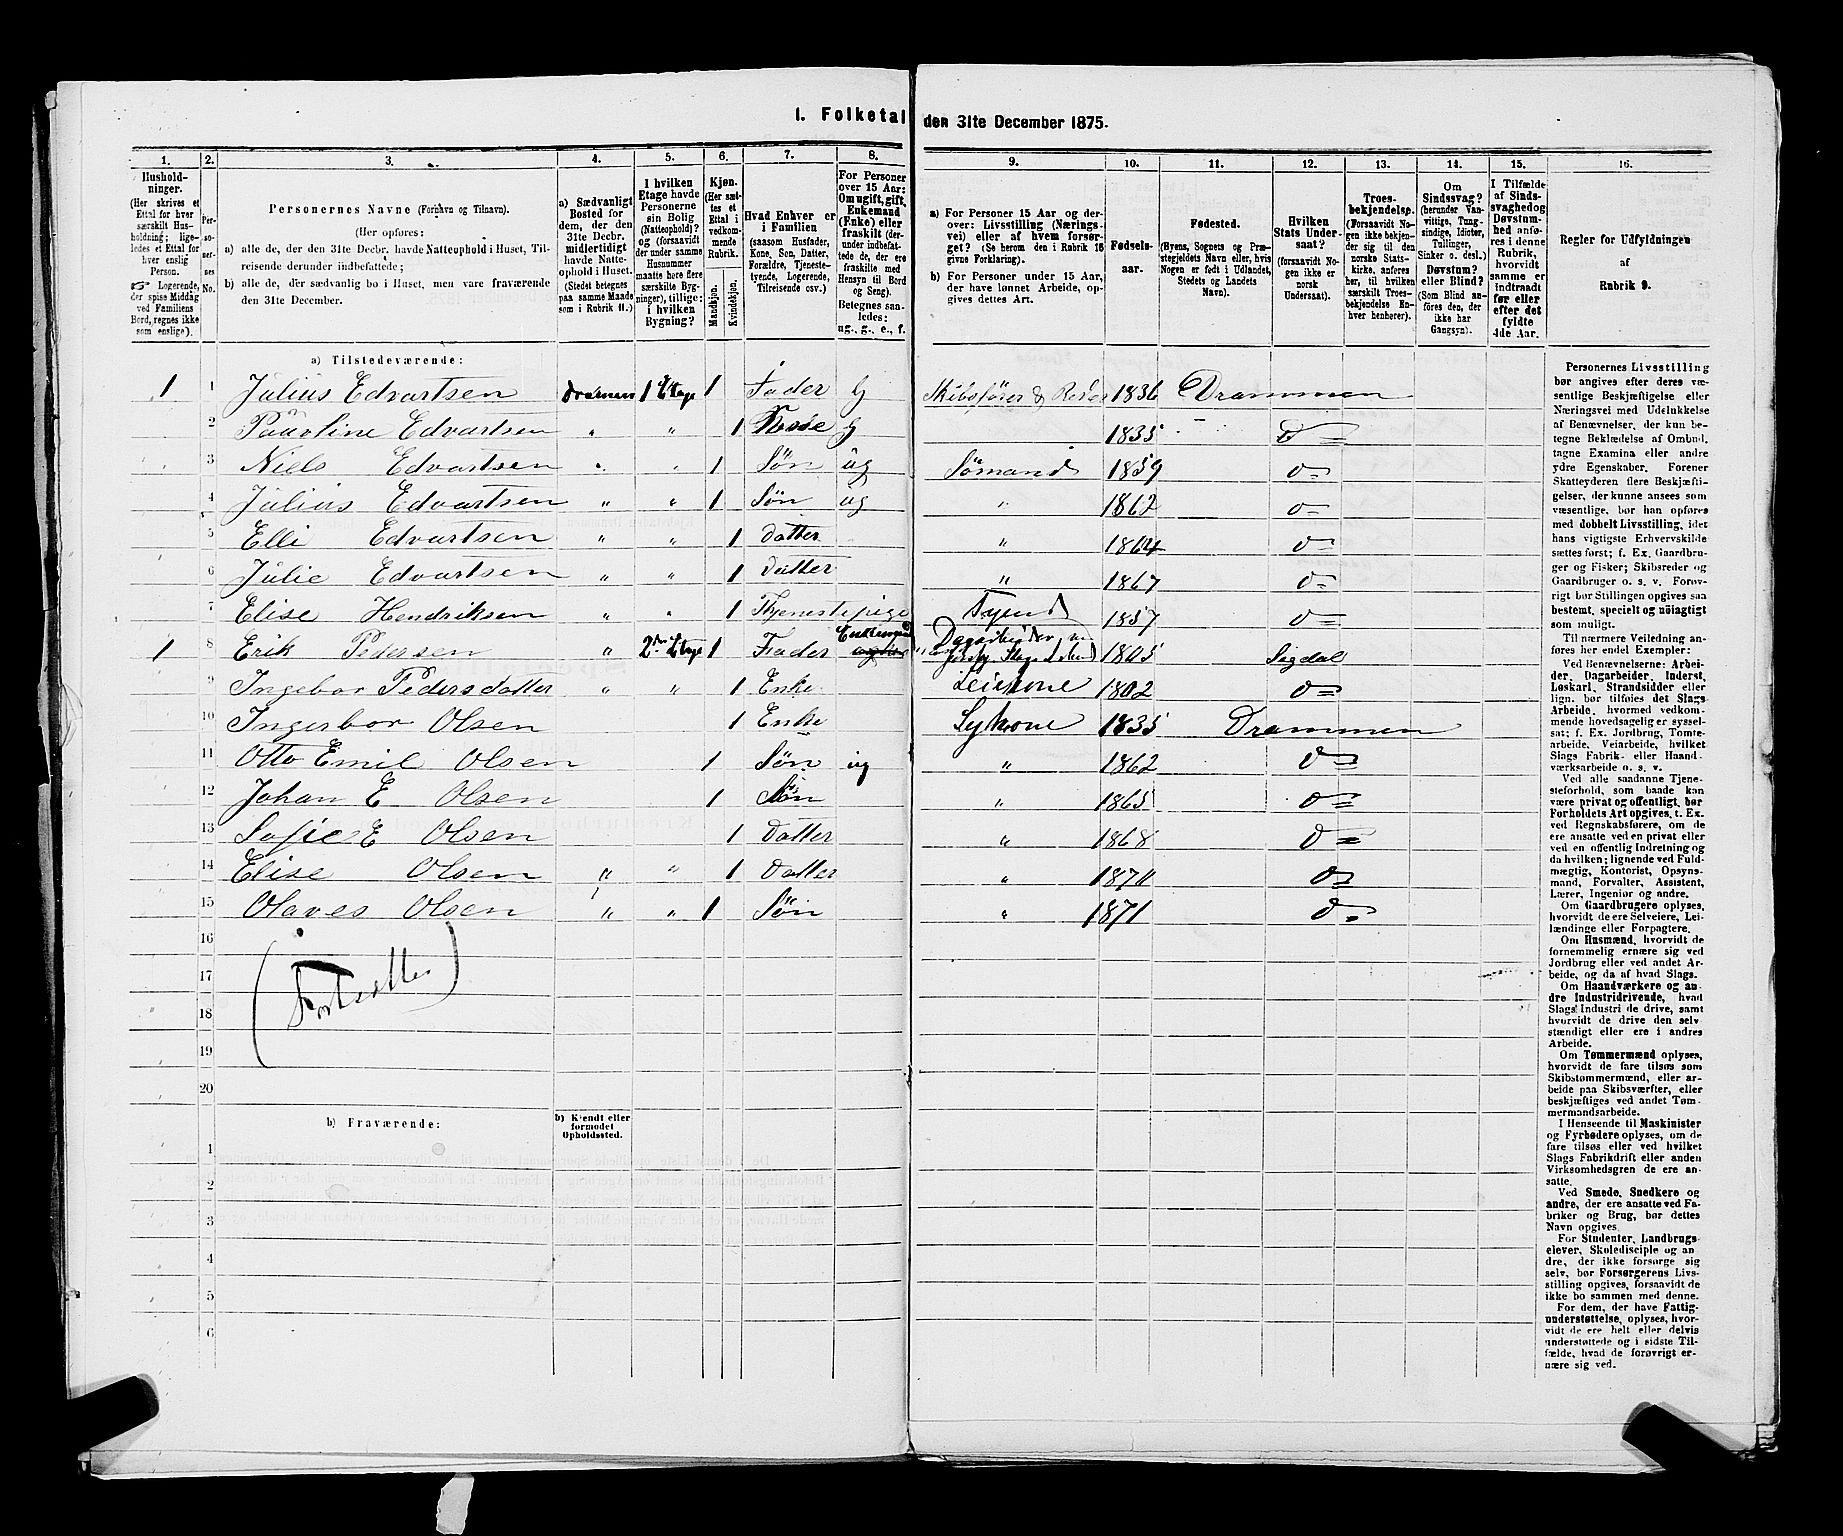 I. Folketal den 31te December 1875.
1. 2. 3. 4. 5. 6. 7. 8. 9. 10. 11. 12. 13. 14. 15. 16.
Hushold-
ninger.
(Her skrives et
Ettal for hver
særskilt Hus-
holdning; lige-
ledes et Ettal for
hver enslig
Person.
☞ Logerende,
der spise Middag
ved Familiens
Bord, regnes ikke
som enslige).
Per-
so-
ner-
nes
No.
Personernes Navne (Fornavn og Tilnavn).
(Her opføres:
a) alle de, der den 31te Decbr. havde Natteophold i Huset, Til-
reisende derunder indbefattede;
b) alle de, der sædvanlig bo i Huset, men vare fraværende
den 31te December.
a) Sædvanligt
Bosted for
dem, der den
31te Decbr.
midlertidigt
havde Natte-
ophold i Huset.
(Stedet betegnes
paa samme Maade
som i Rubrik 11.)
I hvilken
Etage havde
Personerne
sin Bolig
(Natteophold)?
og (forsaavidt
der under samme
Husnummer
maatte høre flere
særskilte Byg-
ninger), tillige:
i hvilken
Bygning?
Kjøn.
(Her sæt-
tes et
Ettal i
vedkom-
mende
Rubrik.
Mandkjøn.
Kvindekjøn.
Hvad Enhver er
i Familien
(saasom Husfader,
Kone, Søn, Datter,
Forældre, Tjeneste-
tyende, Logerende,
Tilreisende osv.)
For Personer
over 15 Aar:
Om ugift, gift,
Enkemand
(Enke) eller
fraskilt (der-
under indbefat-
tede de, der ere
fraskilte med
Hensyn til Bord
og Seng).
Betegnes saa-
ledes:
ug., g., e., f.
a) For Personer 15 Aar og der-
over: Livsstilling (Nærings-
vei) eller af hvem forsør-
get? (Se herom den i Rubrik 16
givne Forklaring).
b) For Personer under 15 Aar,
der have lønnet Arbeide, op-
gives dettes Art.
Fødsels-
aar.
Fødested.
(Byens, Sognets og Præ-
stegjeldets Navn eller, hvis
Nogen er født i Udlandet,
Stedets og Landets
Navn).
Hvilken
Stats Under-
saat?
(forsaavidt No-
gen ikke er
norsk
Undersaat).
Troes-
bekjendelse.
(Forsaavidt No-
gen ikke bekjen-
der sig til den
norske Stats-
kirke, anføres
her, til hvilken
særskilt Troes-
bekjendelse En-
hver henhører).
Om
Sindssvag?
(herunder Van-
vittige, Tung-
sindige, Idioter,
Tullinger,
Sinker o. desl.)
Døvstum?
eller Blind?
(Som Blind an-
føres den, der
ikke har
Gangsyn).
I Tilfælde
af Sinds-
svaghed og
Døvstum-
hed anfø-
res i denne
Rubrik,
hvorvidt
samme er
indtraadt
før eller
efter det
fyldte
4de Aar.
Regler for Udfyldningen
af
Rubrik 9.
a) Tilstedeværende:
1 1 Julius Edvartsen Dramen 1 Etage 1 Fader G Skibsfører & Reder 1836 Drammen
2 Pauoline Edvartsen " " 1 G 1835
3 Niels Edvartsen " " 1 Søn ug Sømand 1859
4 Julius Edvartsen " " 1 Søn ug " 1862
5 Elli Edvartsen " " 1 Datter " 1864
6 Julie Edvartsen " " 1 Datter " 1867
7 Elise Hendriksen " " 1 Thjenestepige Tyend 1857
1 8 Erik Pedersen " 2den Etage 1 Fader Enkemand Dagarbeider 1805 Sigdal
9 Ingebor Pedersdatter " " 1 Enke 1802
10 Ingerbor Olsen 1 Enke Sykone 1835 Drammen
11 Otto Emil Olsen 1 Søn ug " 1862
12 Johan E Olsen 1 Søn " 1865
13 Sofie E Olsen 1 Datter " 1868
14 Elise Olsen " " 1 Datter " 1870
15 Olaves Olsen " " 1 Søn " 1871
16
17
18
19
20
(Fortsættes)
b) Fraværende:
b) Kjendt eller
formodet
Opholdssted.
1
2
3
4
5
6
Personernes Livsstilling
bør angives efter deres væ-
sentlige Beskjæftigelse eller
Næringsvei med Udelukkelse
af Benævnelser, der kun be-
tegne Beklædelse af Ombud,
tagne Examina eller andre
ydre Egenskaber. Forener
Skatteyderen flere Beskjæfti-
gelser, der kunne ansees som
væsentlige, bør han opføres
med dobbelt Livsstilling, idet
hans vigtigste Erhvervskilde
sættes først; f. Ex. Gaardbru-
ger og Fisker; Skibsreder og
Gaardbruger o. s. v. Forøv-
rigt bør Stillingen opgives saa
bestemt, specielt og nøiagtigt
som muligt.
Til nærmere Veiledning an-
føres her endel Exempler:
Ved Benævnelserne: Arbei-
der, Dagarbeider, Inderst,
Løskarl, Strandsidder eller
lign. bør tilføies det Slags
Arbeide, hvormed vedkom-
mende hovedsagelig er syssel-
sat; f. Ex. Jordbrug, Tomte-
arbeide, Veiarbeide, hvilket
Slags Fabrik- eller Haand-
værksarbeide o. s. v.
Ved alle saadanne Tjene-
steforhold, som baade kan
være privat og offentligt, bør
Forholdets Art opgives, t. Ex.
ved Regnskabsførere, om de
ere ansatte ved en privat eller
ved en offentlig Indretning og
da hvilken; lignende ved Fuld-
mægtig, Kontorist, Opsyns-
mand, Forvalter, Assistent,
Lærer, Ingeniør og andre.
Om Gaardbrugere oplyses,
hvorvidt de ere Selveiere, Lei-
lændinge eller Forpagtere.
Om Husmænd, hvorvidt de
fornemmelig ernære sig ved
Jordbrug eller ved andet Ar-
beide, og da af hvad Slags.
Om Haandværkere og an-
dre Industridrivende, hvad
Slags Industri de drive, samt
hvorvidt de drive den selv-
stændigt eller ere i andres
Arbeide.
Om Tømmermænd oplyses,
hvorvidt de fare tilsøs som
Skibstømmermænd, eller ar-
beide paa Skibsværfter, eller
beskjæftiges ved andet Tøm-
mermandsarbeide.
I Henseende til Maskinister
og Fyrbødere oplyses, om de
fare tilsøs eller ved hvilket
Slags Fabrikdrift eller anden
Virksomhedsgren de ere an-
satte.
Ved Smede, Snedkere og
andre, der ere ansatte ved Fa-
briker og Brug, bør dettes
Navn opgives.
For Studenter, Landbrugs-
elever, Skoledisciple og an-
dre, der ikke forsørge sig
selv, bør Forsørgerens Livs-
stilling opgives, forsaavidt de
ikke bo sammen med denne.
For dem, der have Fattig-
understøttelse, oplyses, hvor-
vidt de ere helt eller delvis
understøttede og i sidste Til-
fælde, hvad de forøvrigt er-
nære sig ved.